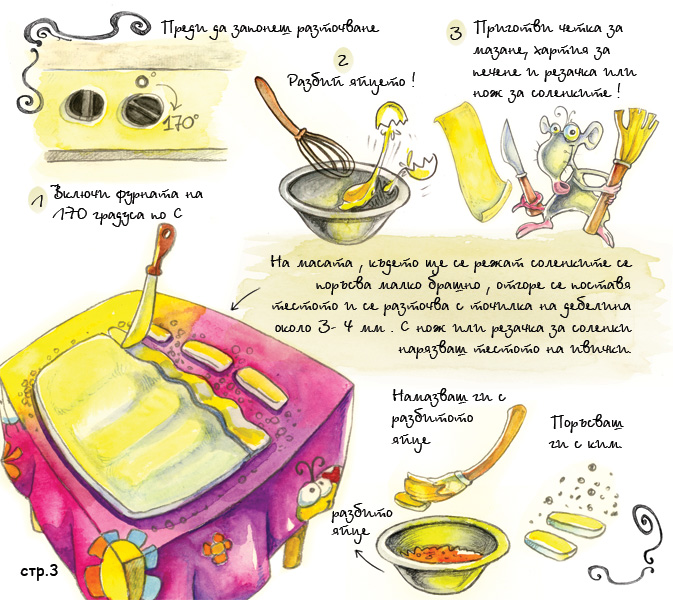 Преди да запонеш разточване
170°
1 Включи фурната на
170 градуса по С
2
Разбий яйцето!
3 Приготви четка за
мазане, хартия за
печене и резачка или
нож за соленките!
На масата, където ще се режат соленките се
поръсва малко брашно, отгоре се поставя
тестото и се разточва с точилка на дебелина
около 3-4 мм. С нож или резачка за соленки
нарязваш тестото на ивички.
Намазваш ги с
разбитото
яйце
Поръсваш
ги с ким.
разбито
яйце
стр.3